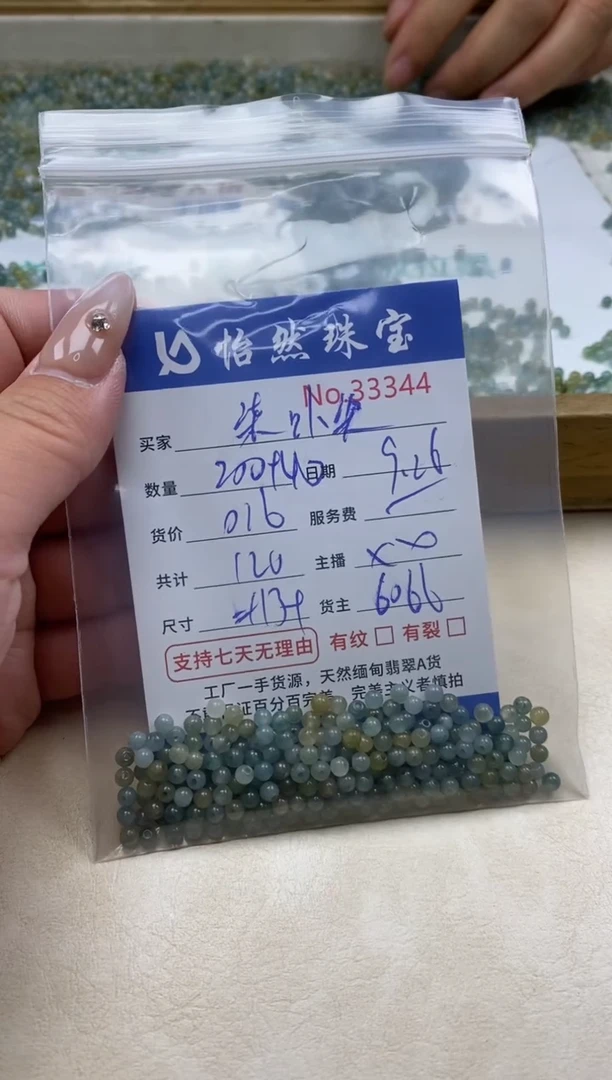 怡然珠宝
No.33344
买家
数量 200+40 日期 9.26
货价 016 服务费
共计 120 主播
尺寸 货主 6066
支持七天无理由 有纹 □ 有裂 □
工厂一手货源，天然缅甸翡翠A货
证百分百完美 完美主义者慎拍